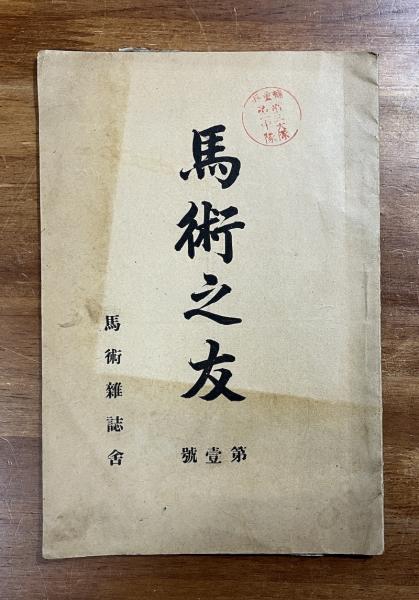 馬術之友
第壹號
馬術雜誌舍